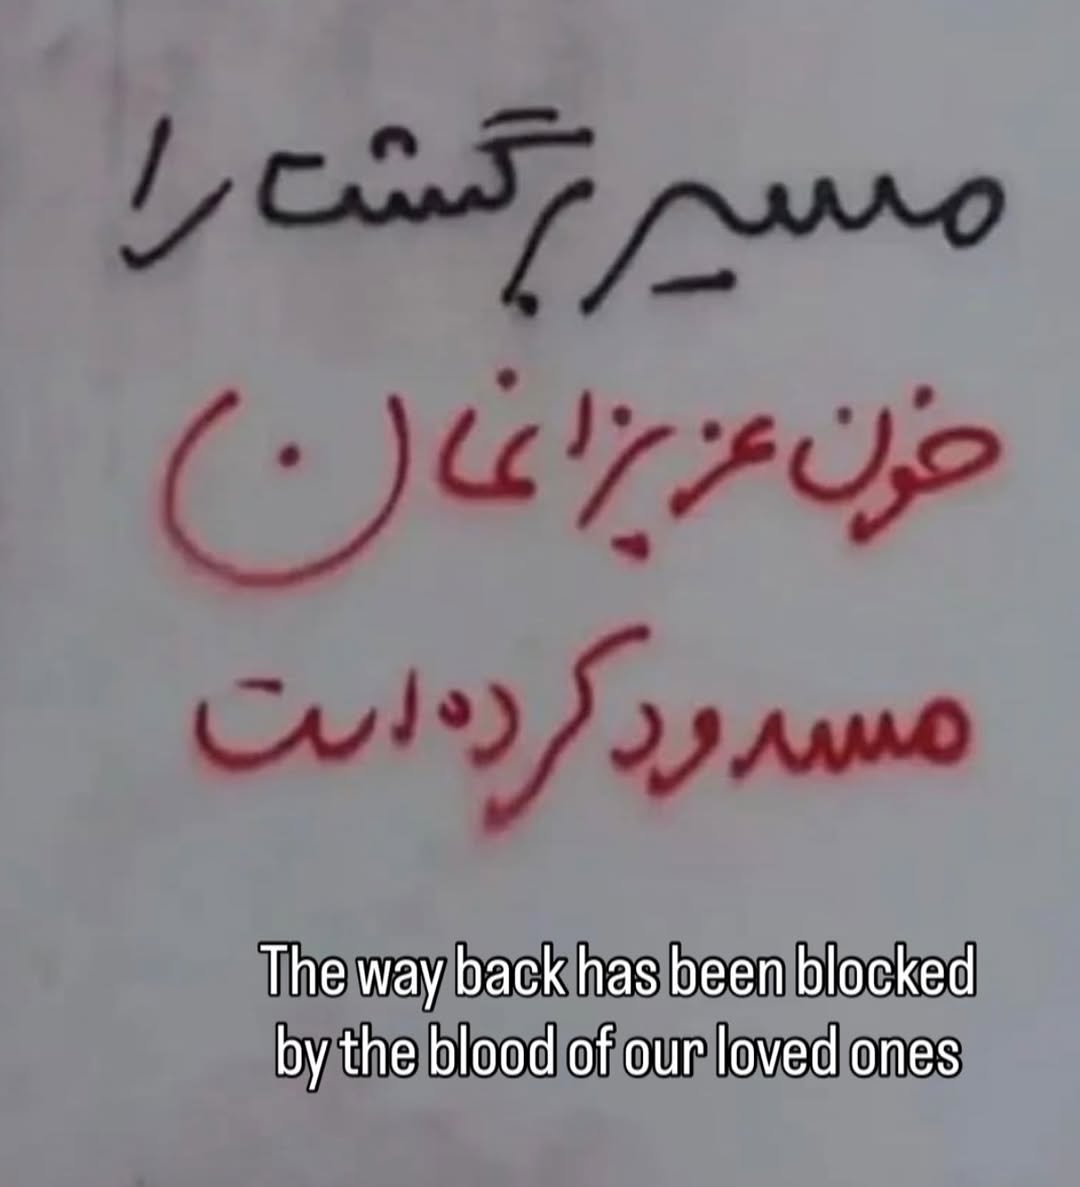 مسیر برگشت را
خون عزیزانمان
مسدود کرده است
The way back has been blocked
by the blood of our loved ones